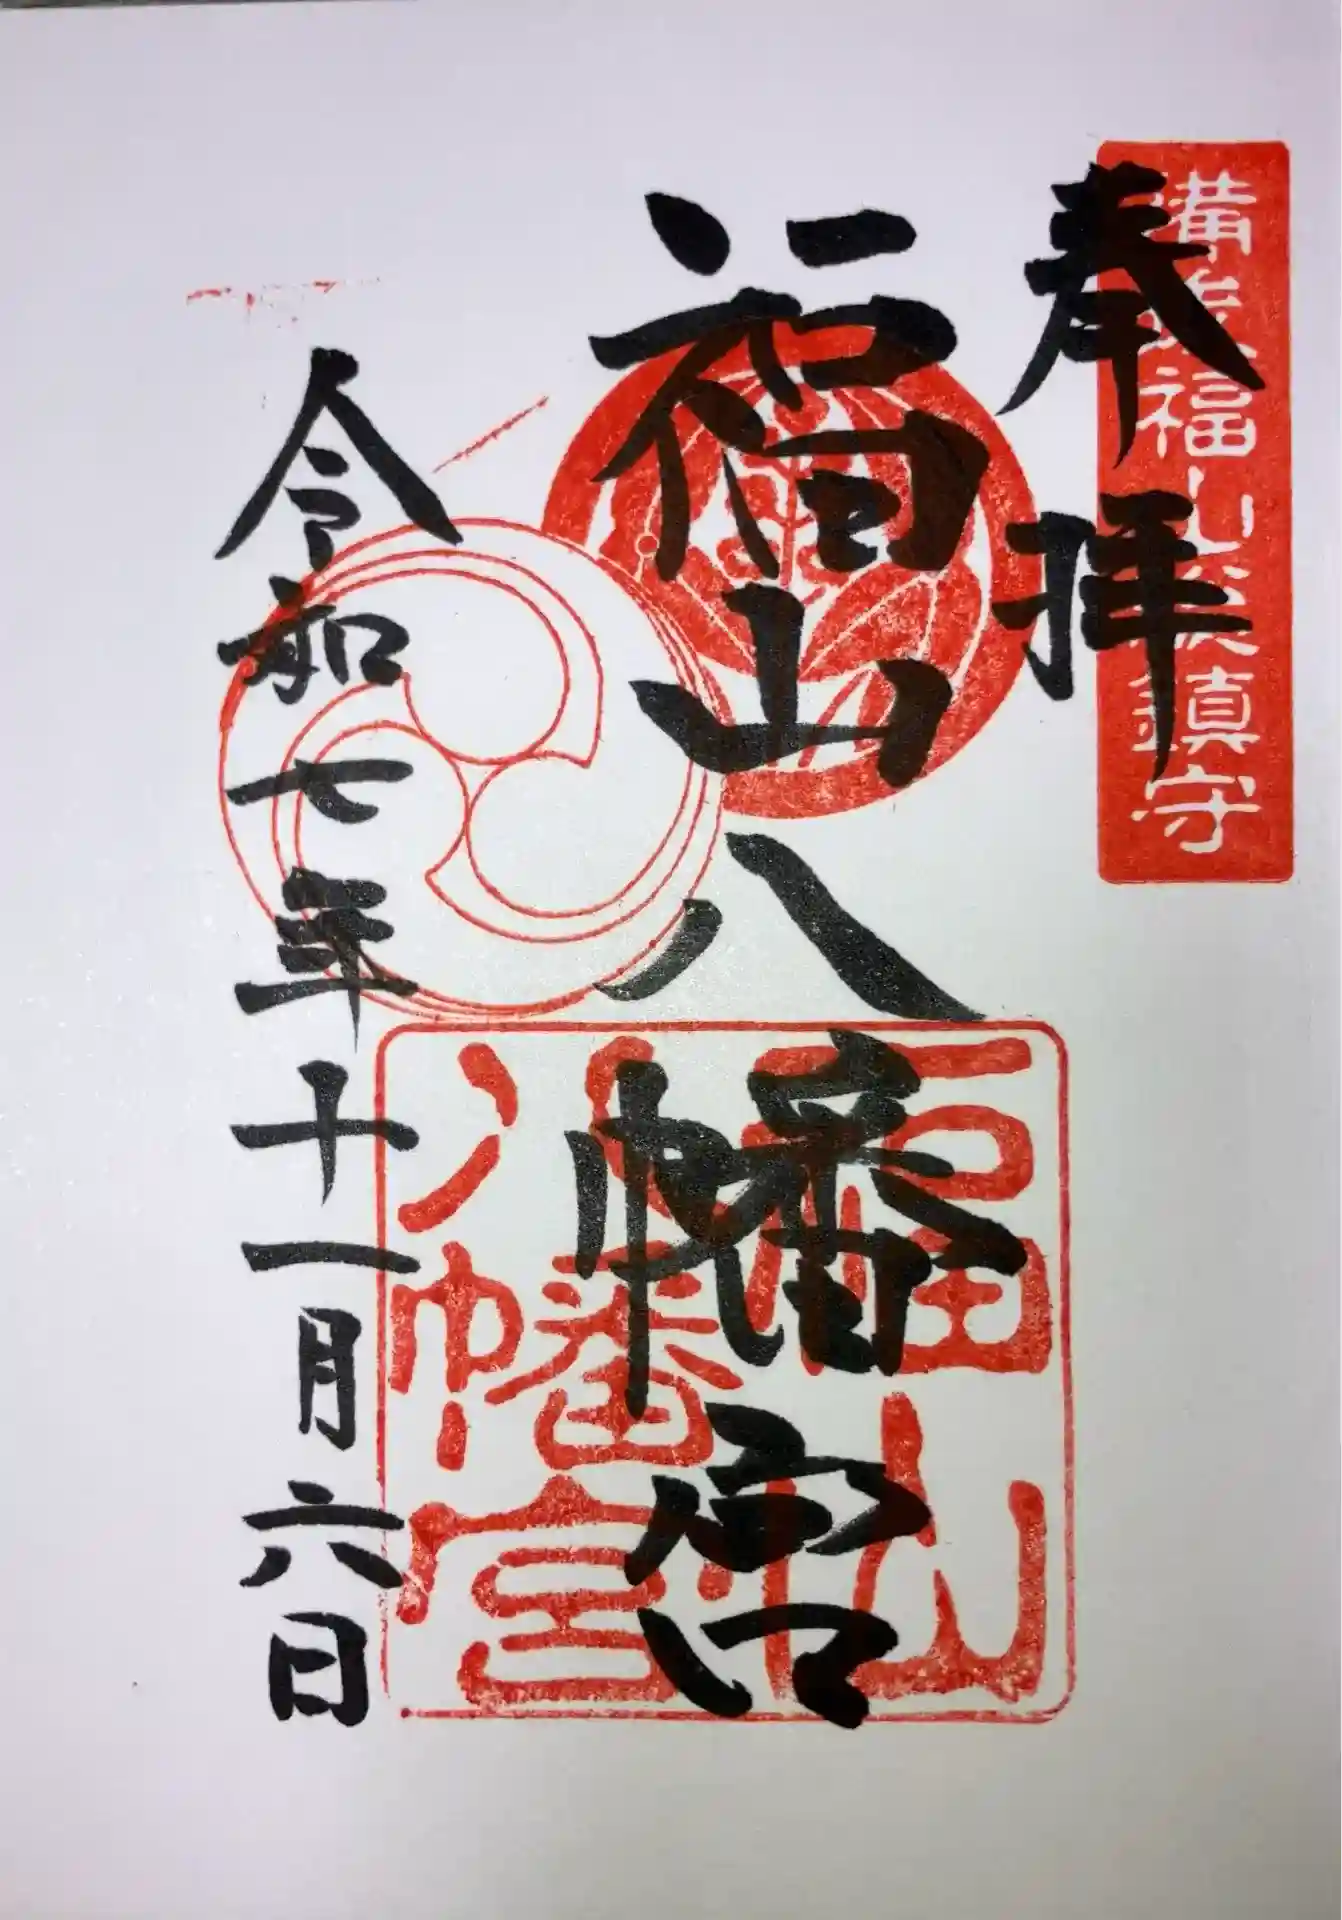 奉拝
備後福山総鎮守
福山八幡宮
福山
八幡宮
令和七年十一月六日